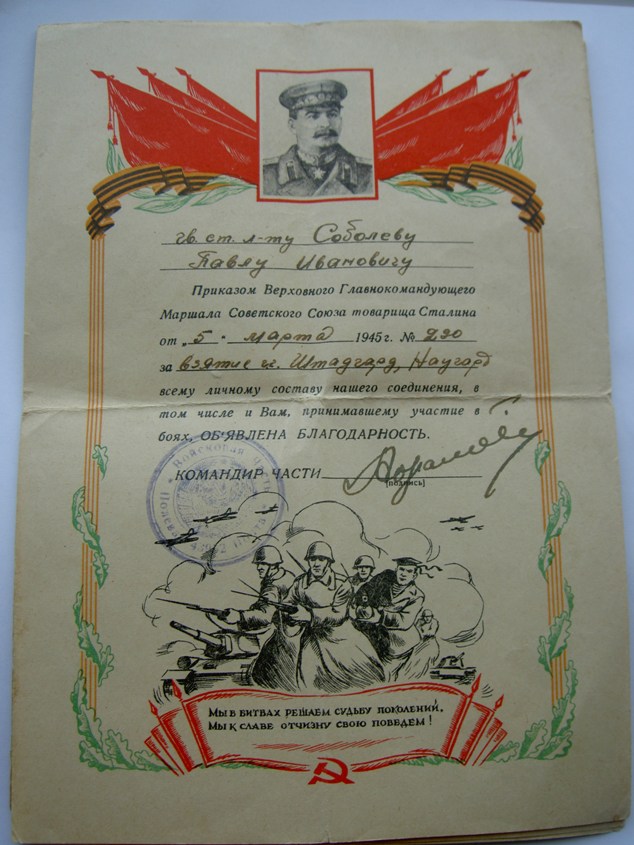 гв. ст. л-ту Соболеву
Павлу Ивановичу
Приказом Верховного Главнокомандующего
Маршала Советского Союза товарища Сталина
от „5“ марта 1945 г. № 290
за взятие гг. Штадгард, Наугард
всему личному составу нашего соединения, в
том числе и Вам, принимавшему участие в
боях, ОБ'ЯВЛЕНА БЛАГОДАРНОСТЬ.
КОМАНДИР ЧАСТИ
(подпись)
Войсковая часть Полевая
МЫ В БИТВАХ РЕШАЕМ СУДЬБУ ПОКОЛЕНИЙ,
МЫ К СЛАВЕ ОТЧИЗНУ СВОЮ ПОВЕДЕМ!